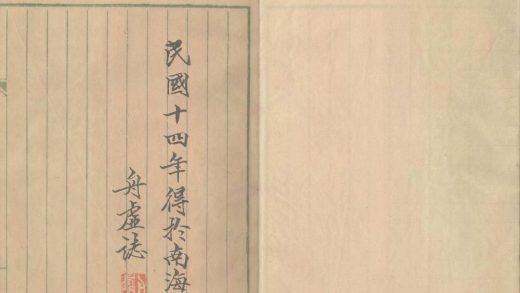 民國十四年得於南海
舟虛誌